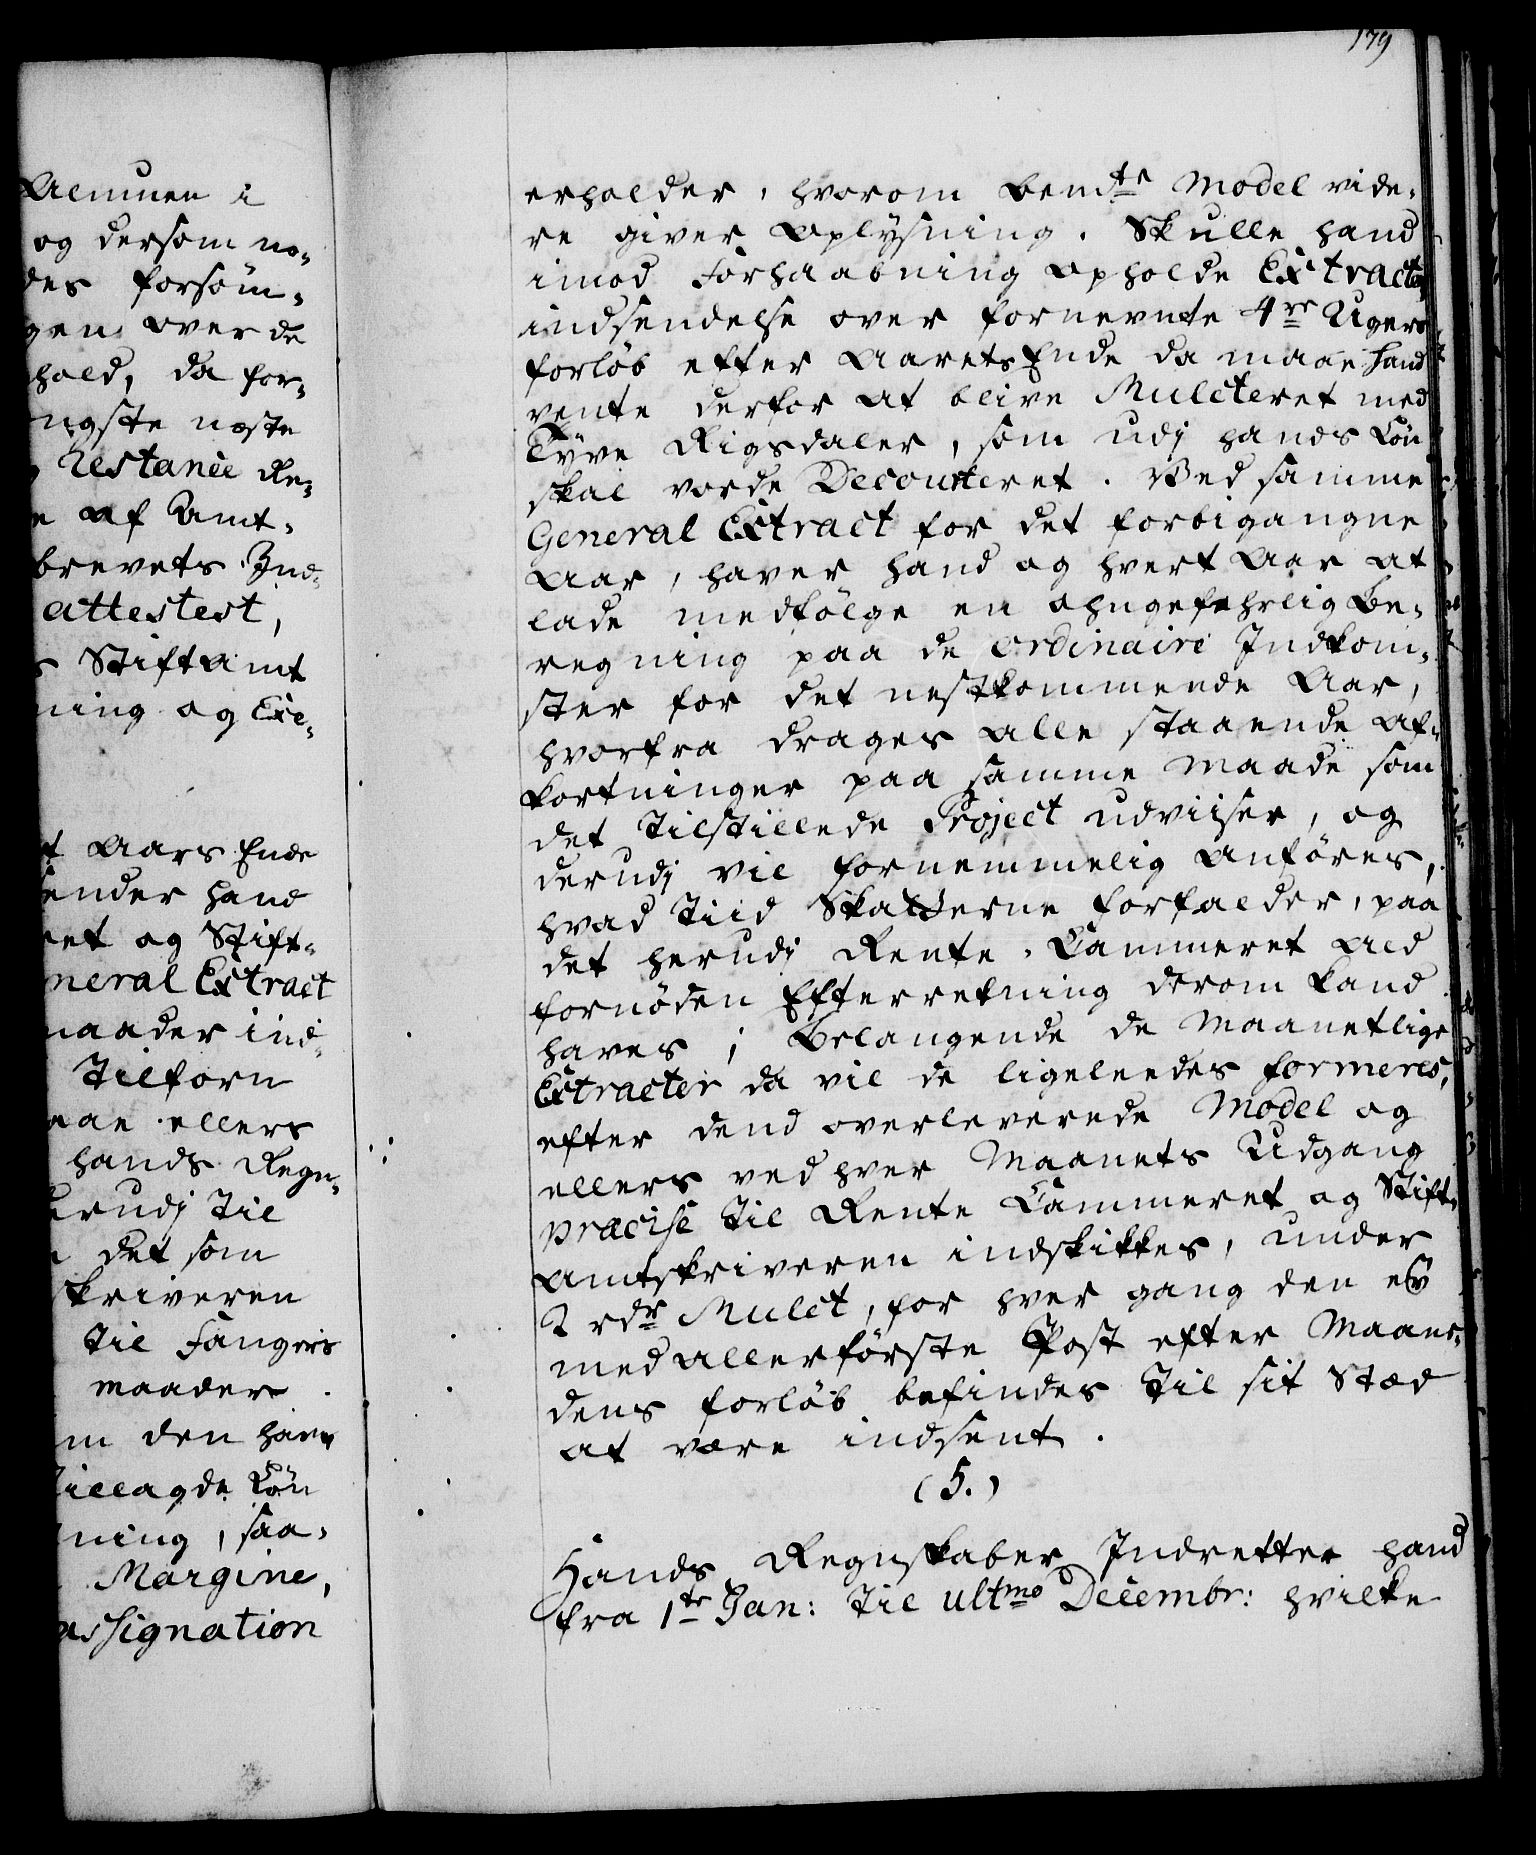 179
Alminen i
og dersom no-
des forsöm-
gen over de
hold, da for-
ngste næste
Restance Re-
af Amt-
brevets Ind-
attestert,
Stiftamt
ning og Exe-
Aars Ende
ender hand
et og Stift-
neral Extract
maader ind-
Tilforn
aae ellers
hands Regn-
erudj til
det som
skriveren
til Fangers
maader
m den hans
tillagde Lön
ning, saa-
Margine,
assignation
erholder, hvorom bemte Model vide-
re giver Oplysning. Skulle hand
imod Forhaabning opholde Extracten
indsendelse over fornevnte 4re Ugers
forlöb efter Aarets Ende da maae hand
vente derfor at blive Mulcteret med
Tyve Rigsdaler, som udj hands Lön
skal vorde Decourteret. Ved samme
General Extract for det forbigangne
Aar, haver hand og hvert Aar at
lade medfölge en ohngefehrlig Be-
regning paa de ordinaire Indkom-
ster for det nestkommende Aar,
hvorfra drages alle staaende Af-
kortninger paa samme Maade som
det tilstillede Project udviiser, og
derudj vil fornemmelig anföres,
hvad Tiid Skatterne forfalder, paa
det herudj Rente-Cammeret ald
fornöden Efterretning derom kand
haves; Belangende de Maanetlige
Extracter da vil de ligeleedes formeres,
efter dend overleverede Model og
ellers ved hver Maanets Udgang
præcise til Rente Cammeret og Stift-
amtskriveren indskikkes, under
2 rdr Mulct, for hver gang den ey
med allerförste Post efter Maane-
dens forlöb befindes til sit Stæd
at være indsent.
(5.)
Hands Regnskaber Indretter hand
fra 1te Jan: til ultmo Decembr: hvilke